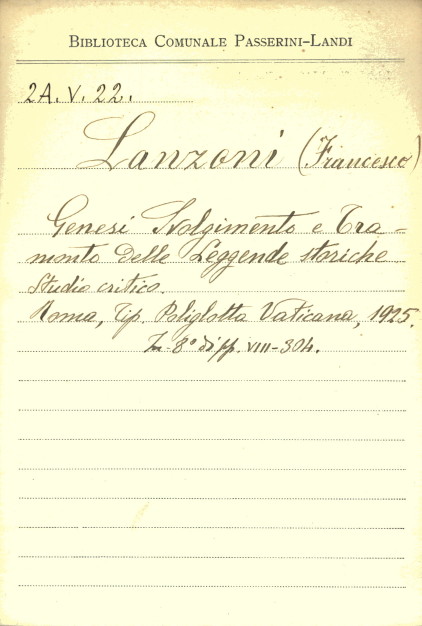 BIBLIOTECA COMUNALE PASSERINI-LANDI
2A. V. 22.
Lanzoni (Francesco)
Genesi Svolgimento e Tra-
monto delle Leggende storiche
Studio critico.
Roma, Tip. Poliglotta Vaticana, 1925.
In 8° di pp. VIII-304.